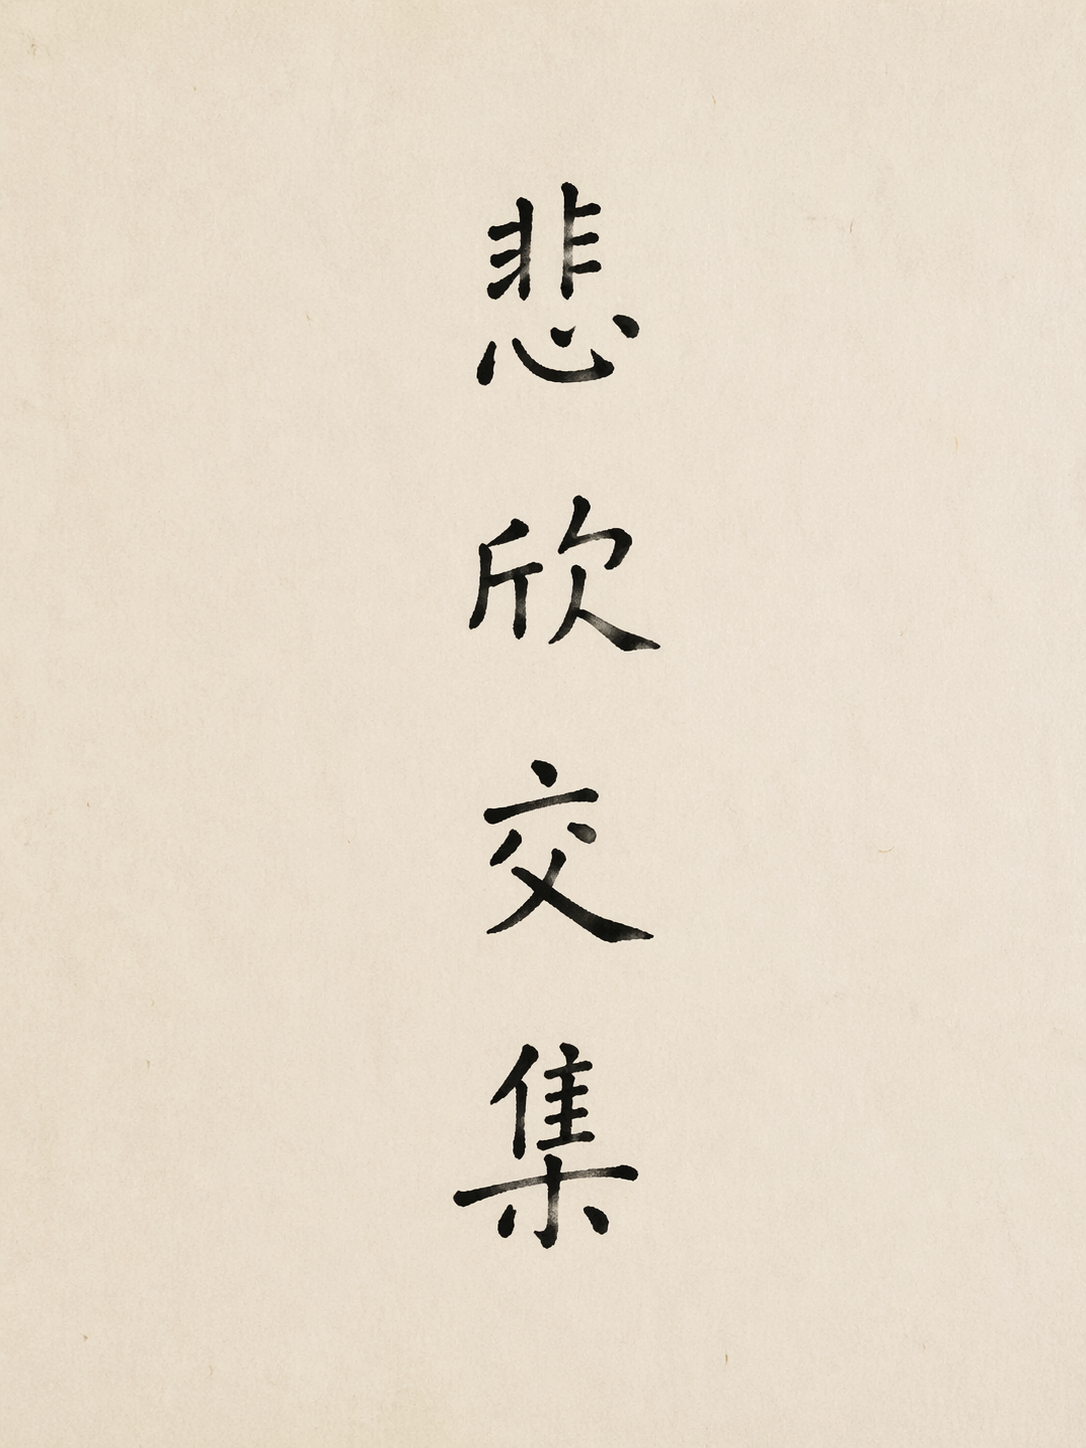 悲欣交集